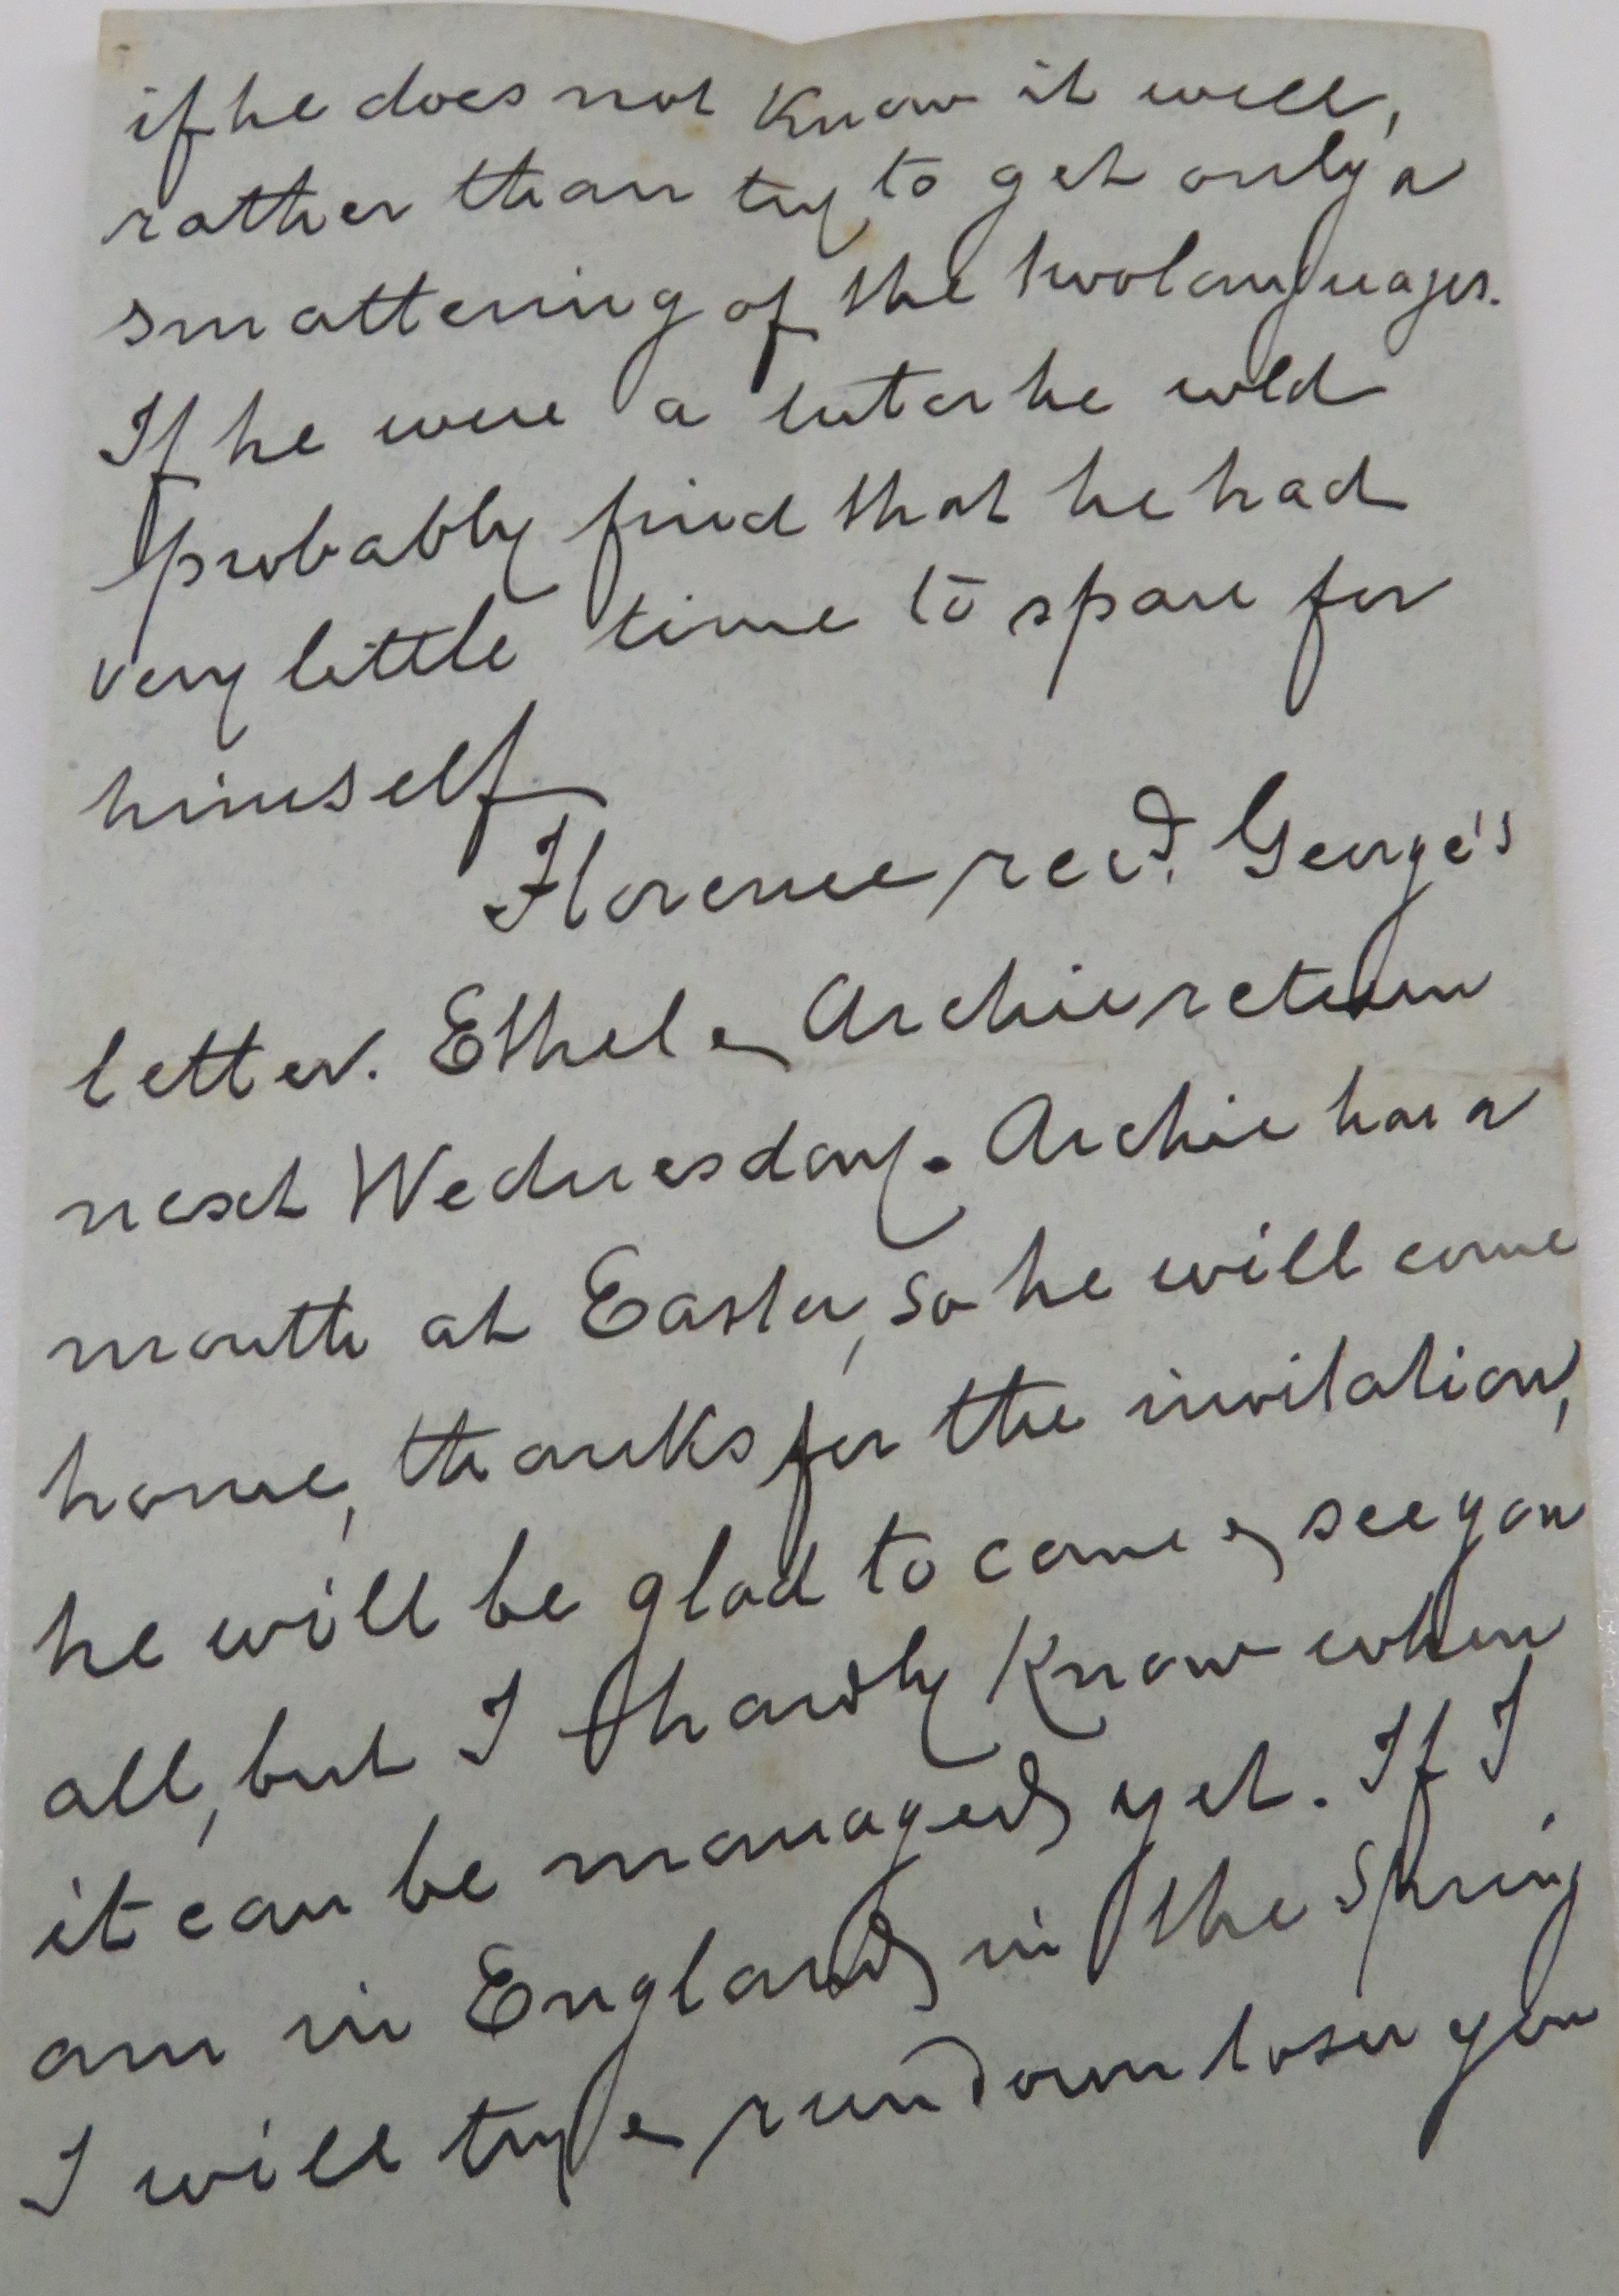 if he does not know it well,
rather than try to get only a
smattering of the two languages.
If he were a tutor he wld
probably find that he had
very little time to spare for
himself
Florence recd. George's
letter. Ethel & Archie return
next Wednesday. Archie has a
month at Easter, so he will come
home, thanks for the invitation,
he will be glad to come & see you
all, but I hardly know when
it can be managed yet. If I
am in England in the Spring
I will try & run down to see you